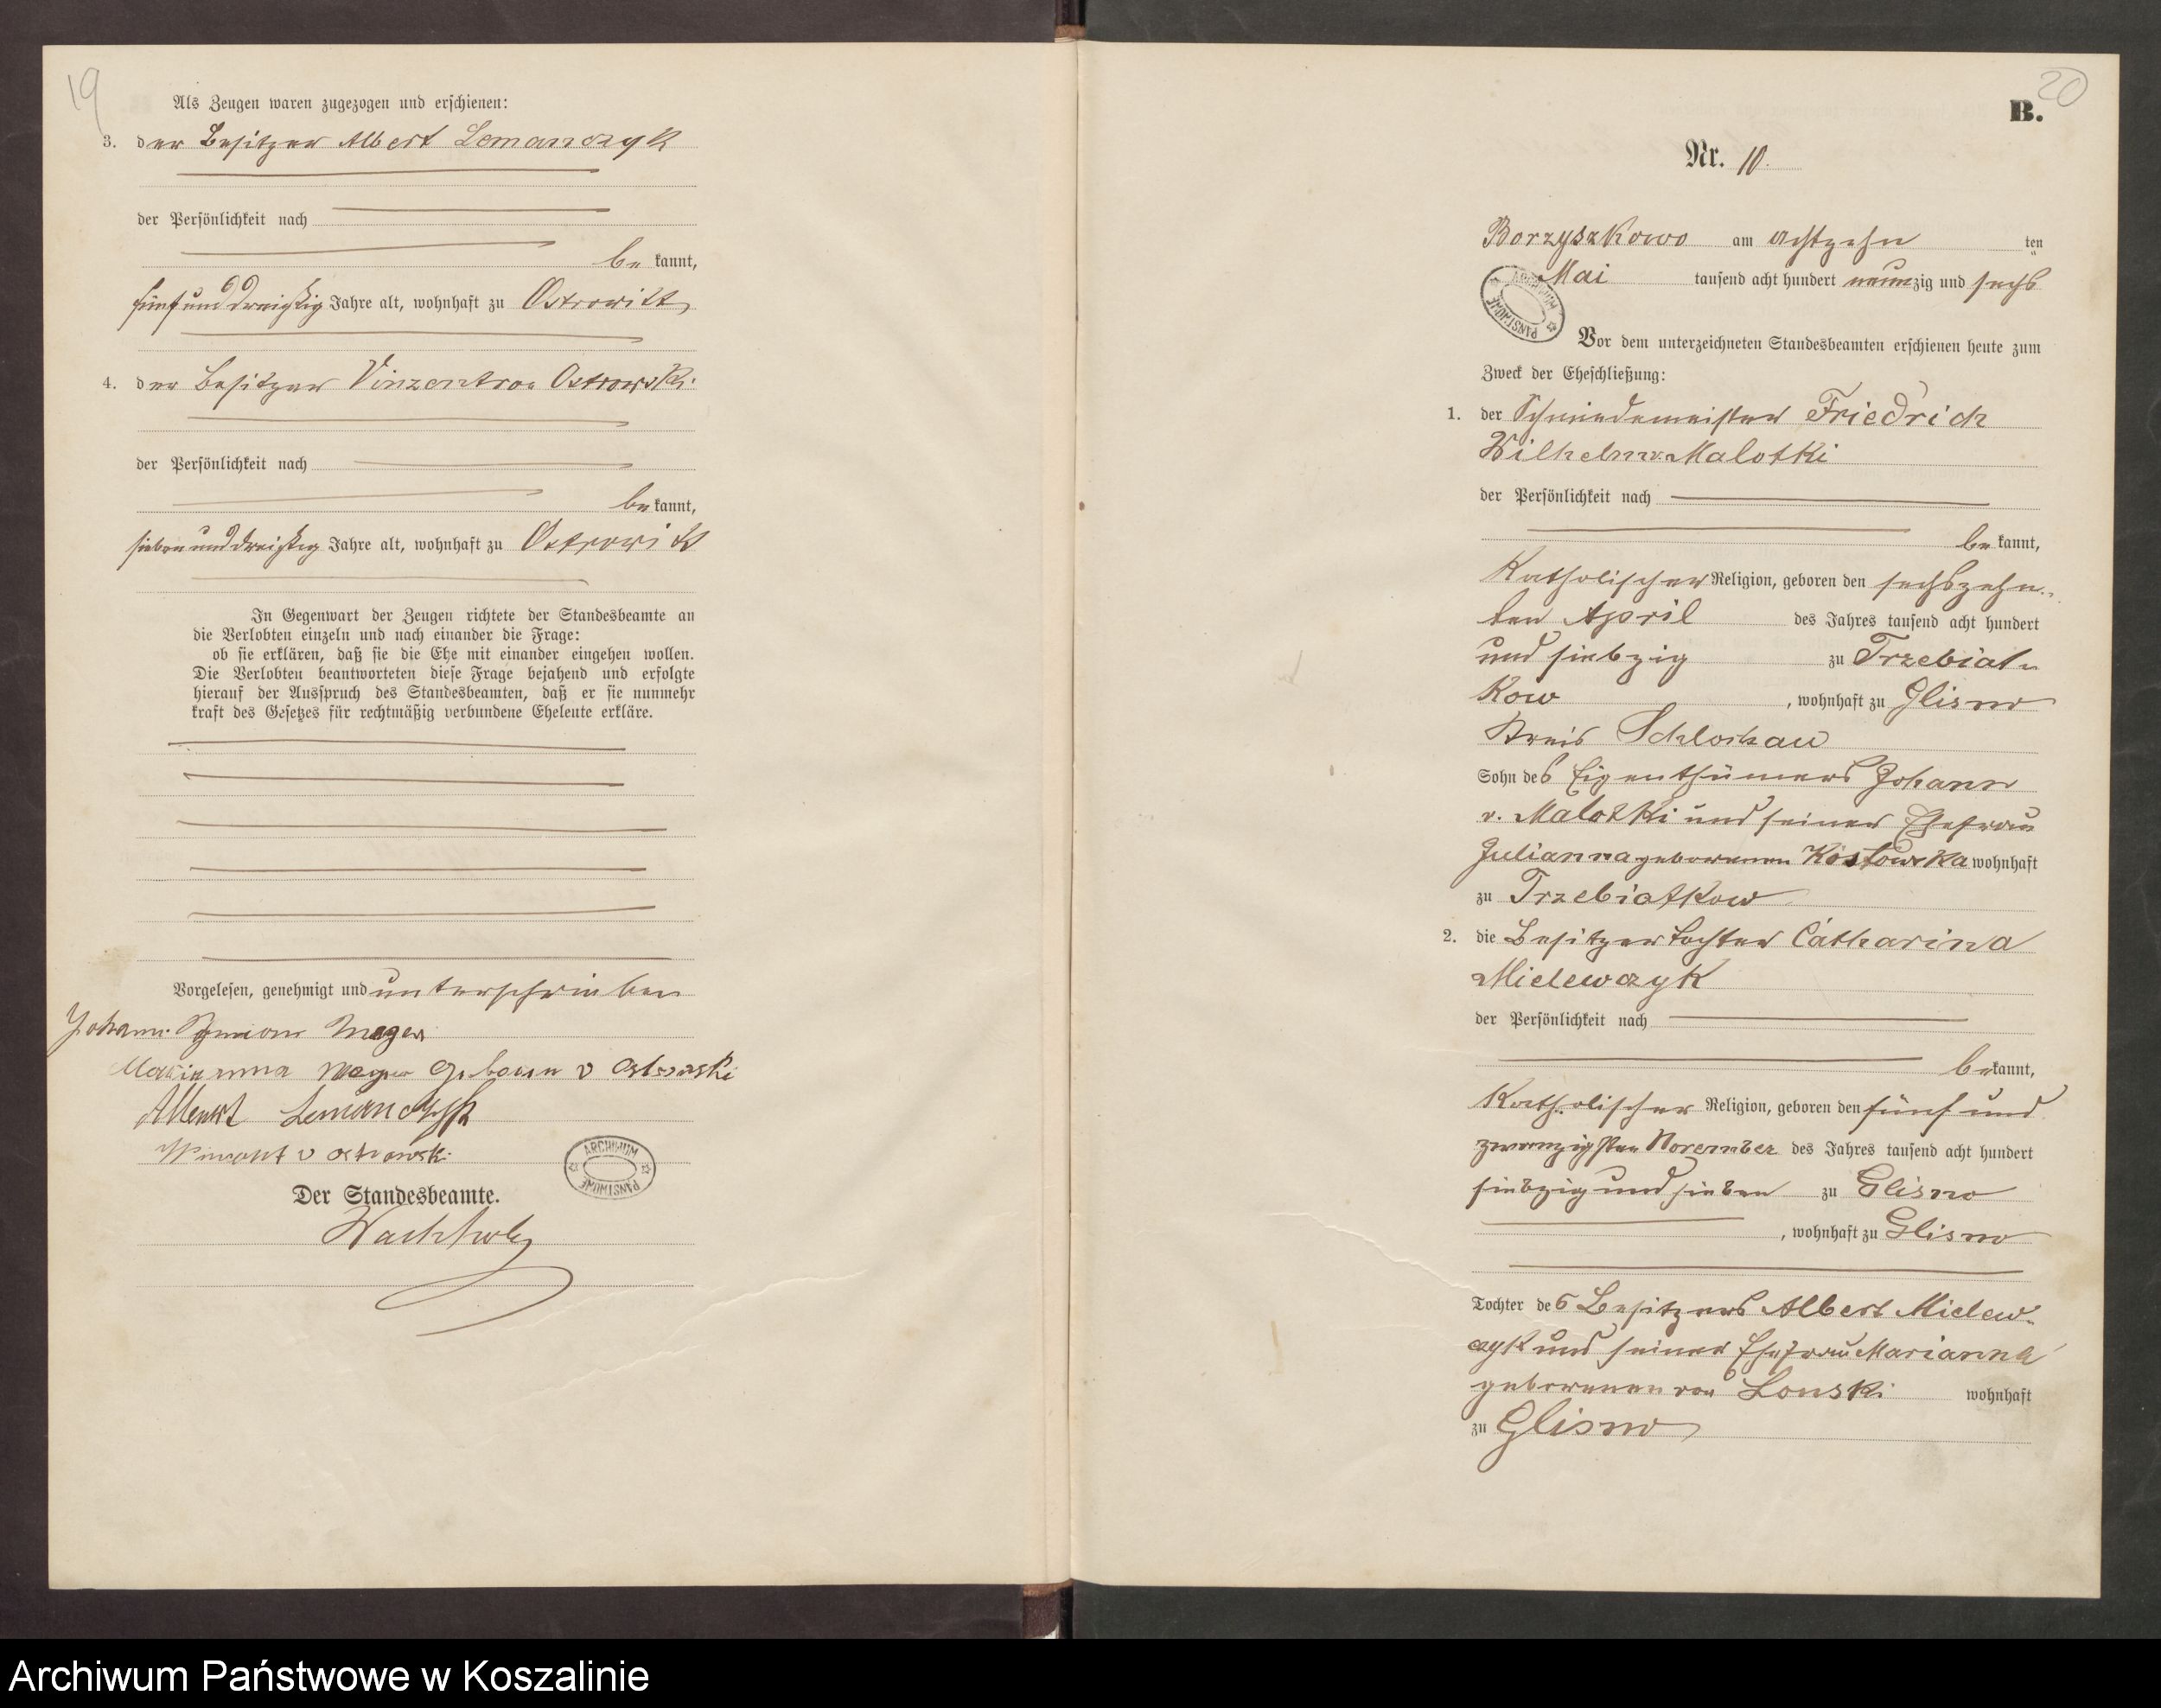 19
Als Zeugen waren zugezogen und erschienen:
3. der Besitzer Albert Lemanczyk
der Persönlichkeit nach
be kannt,
fünfunddreißig Jahre alt, wohnhaft zu Ostrowitt,
4. der Besitzer Vinzent von Ostrowski
der Persönlichkeit nach
be kannt,
siebenunddreißig Jahre alt, wohnhaft zu Ostrowitt
In Gegenwart der Zeugen richtete der Standesbeamte an
die Verlobten einzeln und nach einander die Frage:
ob sie erklären, daß sie die Ehe mit einander eingehen wollen.
Die Verlobten beantworteten diese Frage bejahend und erfolgte
hierauf der Ausspruch des Standesbeamten, daß er sie nunmehr
kraft des Gesetzes für rechtmäßig verbundene Eheleute erkläre.
Vorgelesen, genehmigt und unterschrieben
Johann Meger
Marianna geboren v Ostrowski
Albert Lemanczyk
v Ostrowski
ARCHIWUM PAŃSTWOWE
Der Standesbeamte.
Wachholz
20
B.
Nr. 10.
Borzyszkowo am achtzehn ten
Mai tausend acht hundert neunzig und sechs
ARCHIWUM PAŃSTWOWE
Vor dem unterzeichneten Standesbeamten erschienen heute zum
Zweck der Eheschließung:
1. der Schmiedemeister Friedrich
Wilhelm v. Malotki
der Persönlichkeit nach
be kannt,
Katholischer Religion, geboren den sechszehn-
ten April des Jahres tausend acht hundert
und siebzig zu Trzebiat-
kow, wohnhaft zu Glisno
Kreis Schlochau
Sohn des Eigenthümers Johann
v. Malotki und seiner Ehefrau
Julianna geborenen Kostowska wohnhaft
zu Trzebiatkow
2. die Besitzertochter Catharina
Mielewczyk
der Persönlichkeit nach
be kannt,
Katholischer Religion, geboren den fünf und
zwanzigsten November des Jahres tausend acht hundert
siebzig und sieben zu Glisno
, wohnhaft zu Glisno
Tochter des Besitzers Albert Mielew-
czyk und seiner Ehefrau Marianna
geborenen von Lonski wohnhaft
zu Glisno
Archiwum Państwowe w Koszalinie